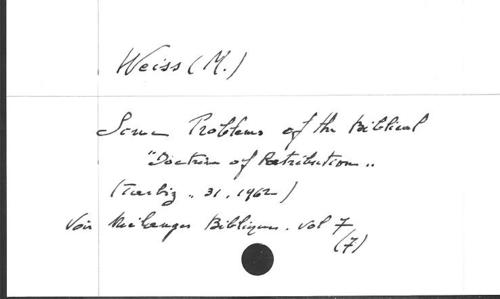 Weiss (M.)
Some Problems of the Biblical
"Doctrine of Retribution"
(Tarbiz. 31, 1962)
Voir Mélanges Bibliques. vol 7
(7)